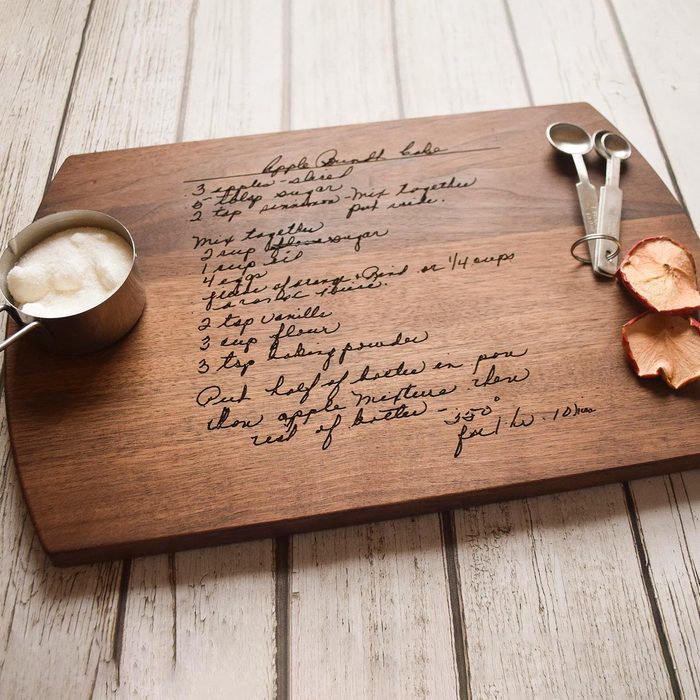 Apple Bundt Cake
3 apples - sliced
5 tblsp sugar
2 tsp cinnamon - mix together
put aside.
Mix together
2 cup sugar
1 cup oil
4 eggs
of orange + Rind or 1/4 cups
juice.
2 tsp vanilla
3 cup flour
3 tsp baking powder
Put half of batter in pan
then apple mixture then
rest of batter - 350°
for 1 hr. 10 min